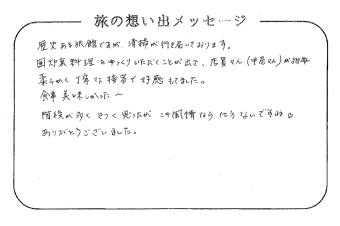 旅の想い出メッセージ
歴史ある旅館ですが、清掃が行き届いております。
囲炉裏料理をゆっくりいただくことが出来、店員さん(中居さん)が
柔らかく丁寧な接客で好感もてました。
食事美味しかった〜
階段が多くきつく思ったが この風情なら仕方ないですね。
ありがとうございました。